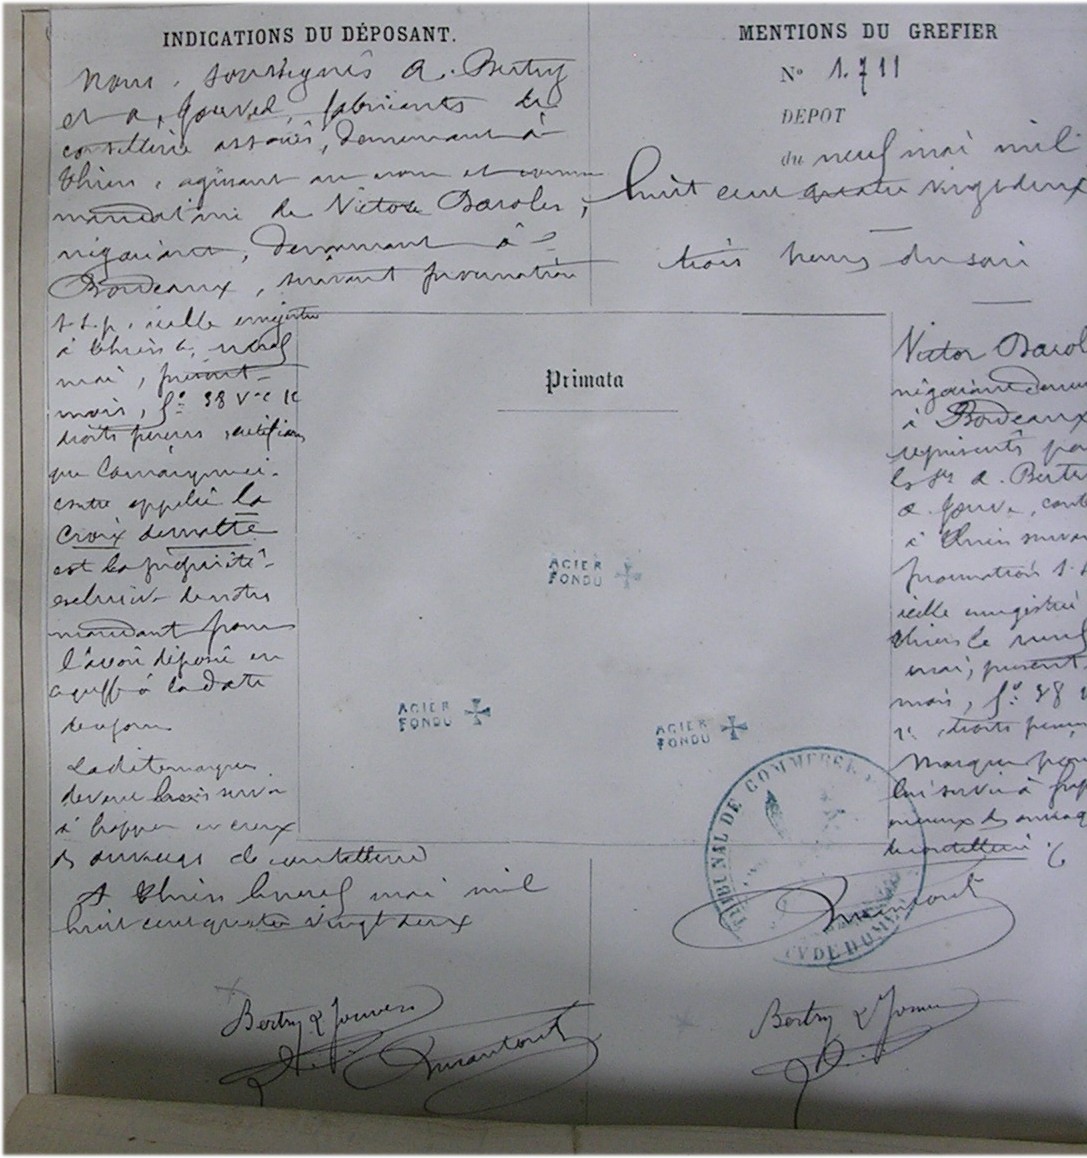 INDICATIONS DU DÉPOSANT.
Nous, soussignés A. Bertry
et A. Jouvel, fabricants de
coutellerie associés, demeurant à
Thiers, agissant au nom et comme
mandataire de Victor Daroles,
négociant, demeurant à
Bordeaux, suivant procuration
s.s.p. icelle enregistrée
à Thiers le neuf
mai, présent
mois, f° 38 v c
droits perçus, certifions
que la marque ci-
contre appelée la
Croix de malte
est la propriété
exclusive de notre
mandant pour
l'avoir déposée en
à la date
de ce jour
Ladite marque
devant servir
à frapper en creux
des ouvrages de coutellerie
A Thiers le neuf mai mil
huit cent quatre vingt deux
Bertry & Jouvel
MENTIONS DU GREFIER
N° 1.711
DÉPOT
du neuf mai mil
huit cent quatre vingt deux
trois heures du soir
Primata
ACIER
FONDU
ACIER
FONDU
ACIER
FONDU
Victor Darol
négociant demeu
à Bordeaux
représenté pa
les srs A. Bertr
A. Jouve, cout
à Thiers suiva
procuration s.s
icelle enregistrée
Thiers le neuf
mai, présent
mois, f° 38
droits perçu
Marque pou
lui servir à frap
en creux des ouvrag
de coutellerie
TRIBUNAL DE COMMERCE
PUY DE DOME
Bertry & Jouvel